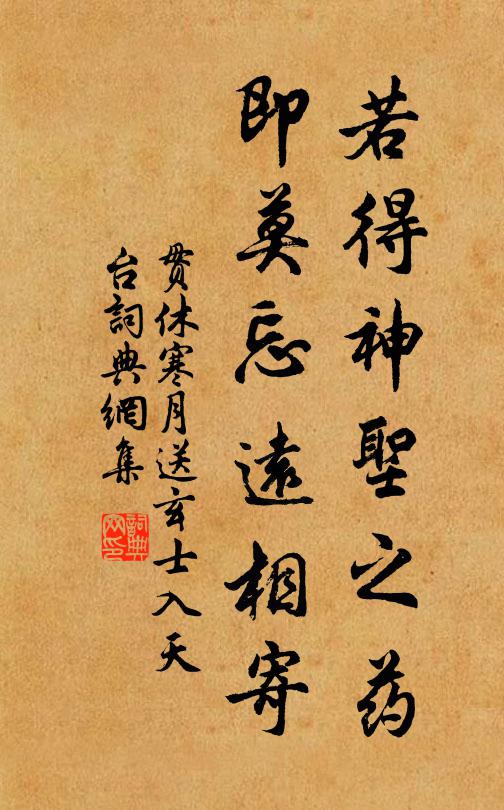 若得神聖之药
即莫忘遠相寄
贯休寒月送玄士入天
台詞典網集
詞典
网印